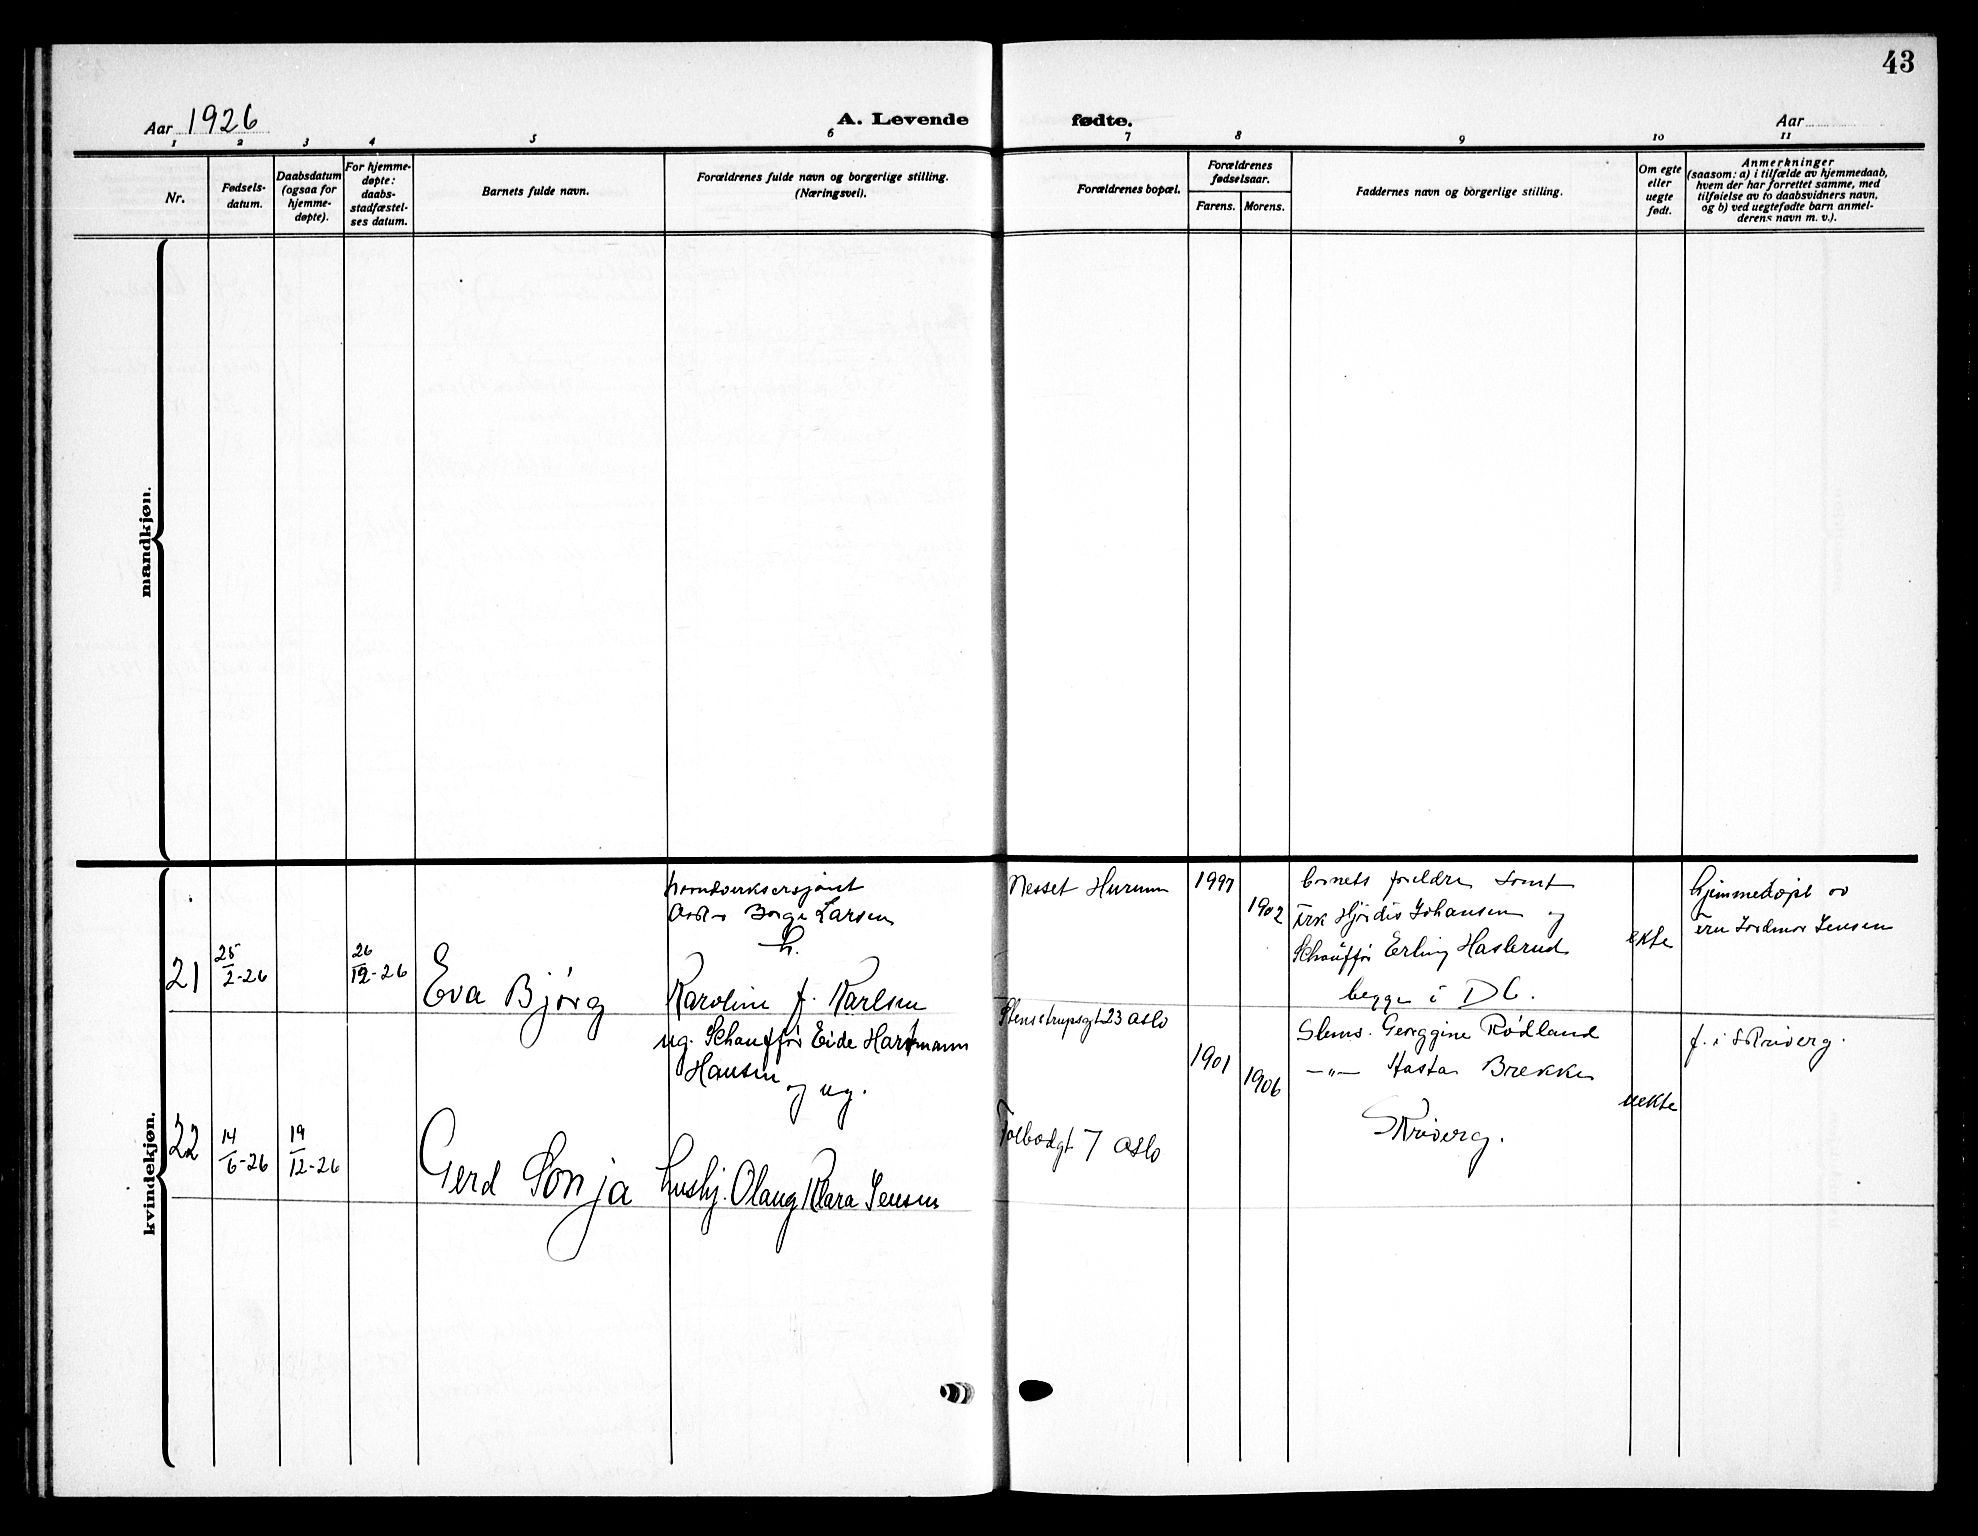 43
Aar 1926
A. Levende fødte.
Aar
1 2 3 4 5 6 7 8 9 10 11
Nr.
Fødsels-
datum.
Daabsdatum
(ogsaa for
hjemme-
døpte).
For hjemme-
døpte:
daabs-
stadfæstel-
ses datum.
Barnets fulde navn.
Forældrenes fulde navn og borgerlige stilling.
(Næringsvei).
Forældrenes bopæl.
Forældrenes
fødselsaar.
Farens. Morens.
Faddernes navn og borgerlige stilling.
Om egte
eller
uegte
født.
Anmerkninger
(saasom: a) i tilfælde av hjemmedaab,
hvem der har forrettet samme, med
tilføielse av to daabsvidners navn,
og b) ved uegtefødte barn anmel-
derens navn m. v.).
mandkjøn.
kvindekjøn.
21
25/2-26
26/12-26
Eva Bjørg
Borge Larsen
h.
Karoline f. Karlsen
Nesset Hurum
1997
1902
barnets foreldre samt
Frk Hjørdis Johansen og
Schauffør Erling Haslerud
begge i DC.
ekte
hjemmedøpt av
Fru Jordmor Jensen
22
14/6-26
19/12-26
Gerd Sonja
ug. Schauffør Eide Hartmann
Hansen og ug.
hushj. Olaug Klara Jensen
Stensstrupsgt 23 Oslo
Tolbodgt 7 Oslo
1901
1906
Stens. Georggine Rødland
-"- Brekke
Skriverg.
uekte
f. i Skriverg.